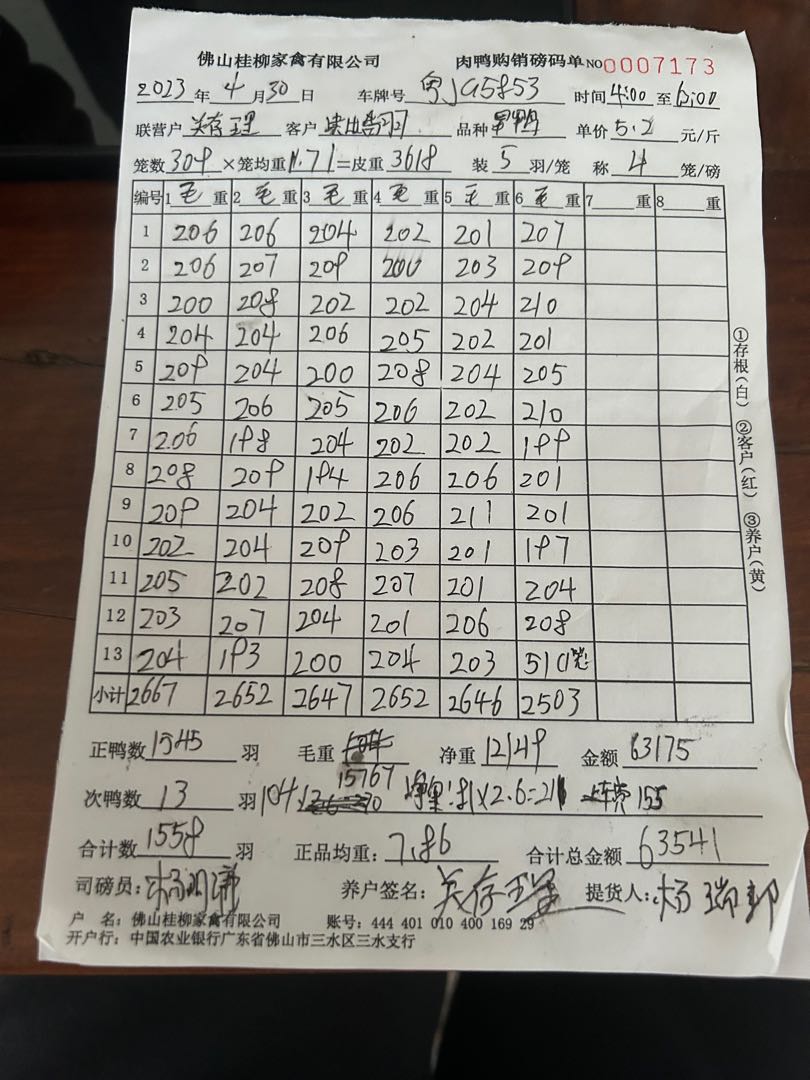 佛山桂柳家禽有限公司 肉鸭购销磅码单 NO 0007173
2023年4月30日 车牌号 粤J G5853 时间 4:00 至 6:00
联营户 关存理 客户 品种 单价 5.2 元/斤
笼数 309 ×笼均重 11.71 =皮重 3618 装 5 羽/笼 称 4 笼/磅
编号 1 毛 重 2 毛 重 3 毛 重 4 毛 重 5 毛 重 6 毛 重 7 重 8 重
1 206 206 204 202 201 207
2 206 207 209 200 203 209
3 200 208 202 202 204 210
4 204 204 206 205 202 201
5 209 204 200 208 204 205
6 205 206 205 206 202 210
7 206 198 204 202 202 199
8 208 209 194 206 206 201
9 209 204 202 206 211 201
10 202 204 209 203 201 197
11 205 202 208 207 201 204
12 203 207 204 201 206 208
13 204 193 200 204 203 51 (1笼)
小计 2667 2652 2647 2652 2646 2503
①存根(白) ②客户(红) ③养户(黄)
正鸭数 1545 羽 毛重 15767 净重 12149 金额 63175
次鸭数 13 羽 104 81×2.6=211 155
合计数 1558 羽 正品均重: 7.86 合计总金额 63541
司磅员: 养户签名: 关存理 提货人: 杨瑞
户 名: 佛山桂柳家禽有限公司 账号: 444 401 010 400 169 29
开户行: 中国农业银行广东省佛山市三水区三水支行